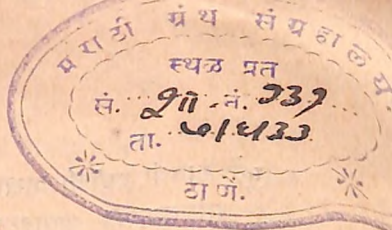 मराठी ग्रंथ संग्रहालय
स्थळ प्रत
सं. शा - नं. १३१
ता. ७/६/33
ठाणें.